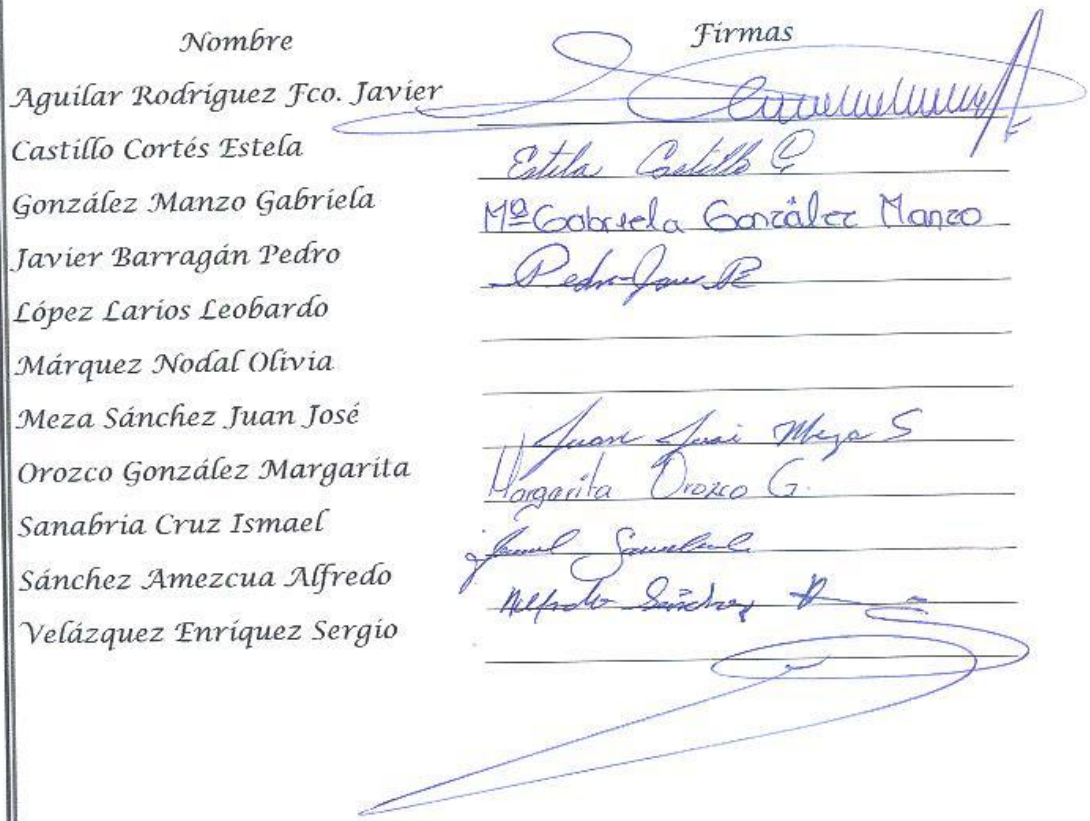 Nombre Firmas
Aguilar Rodríguez Fco. Javier
Castillo Cortés Estela Estela Castillo C
González Manzo Gabriela Mª Gabriela González Manzo
Javier Barragán Pedro Pedro Javier B
López Larios Leobardo
Márquez Nodal Olivia
Meza Sánchez Juan José Juan José Meza S
Orozco González Margarita Margarita Orozco G.
Sanabria Cruz Ismael
Sánchez Amezcua Alfredo Alfredo Sánchez A
Velázquez Enríquez Sergio